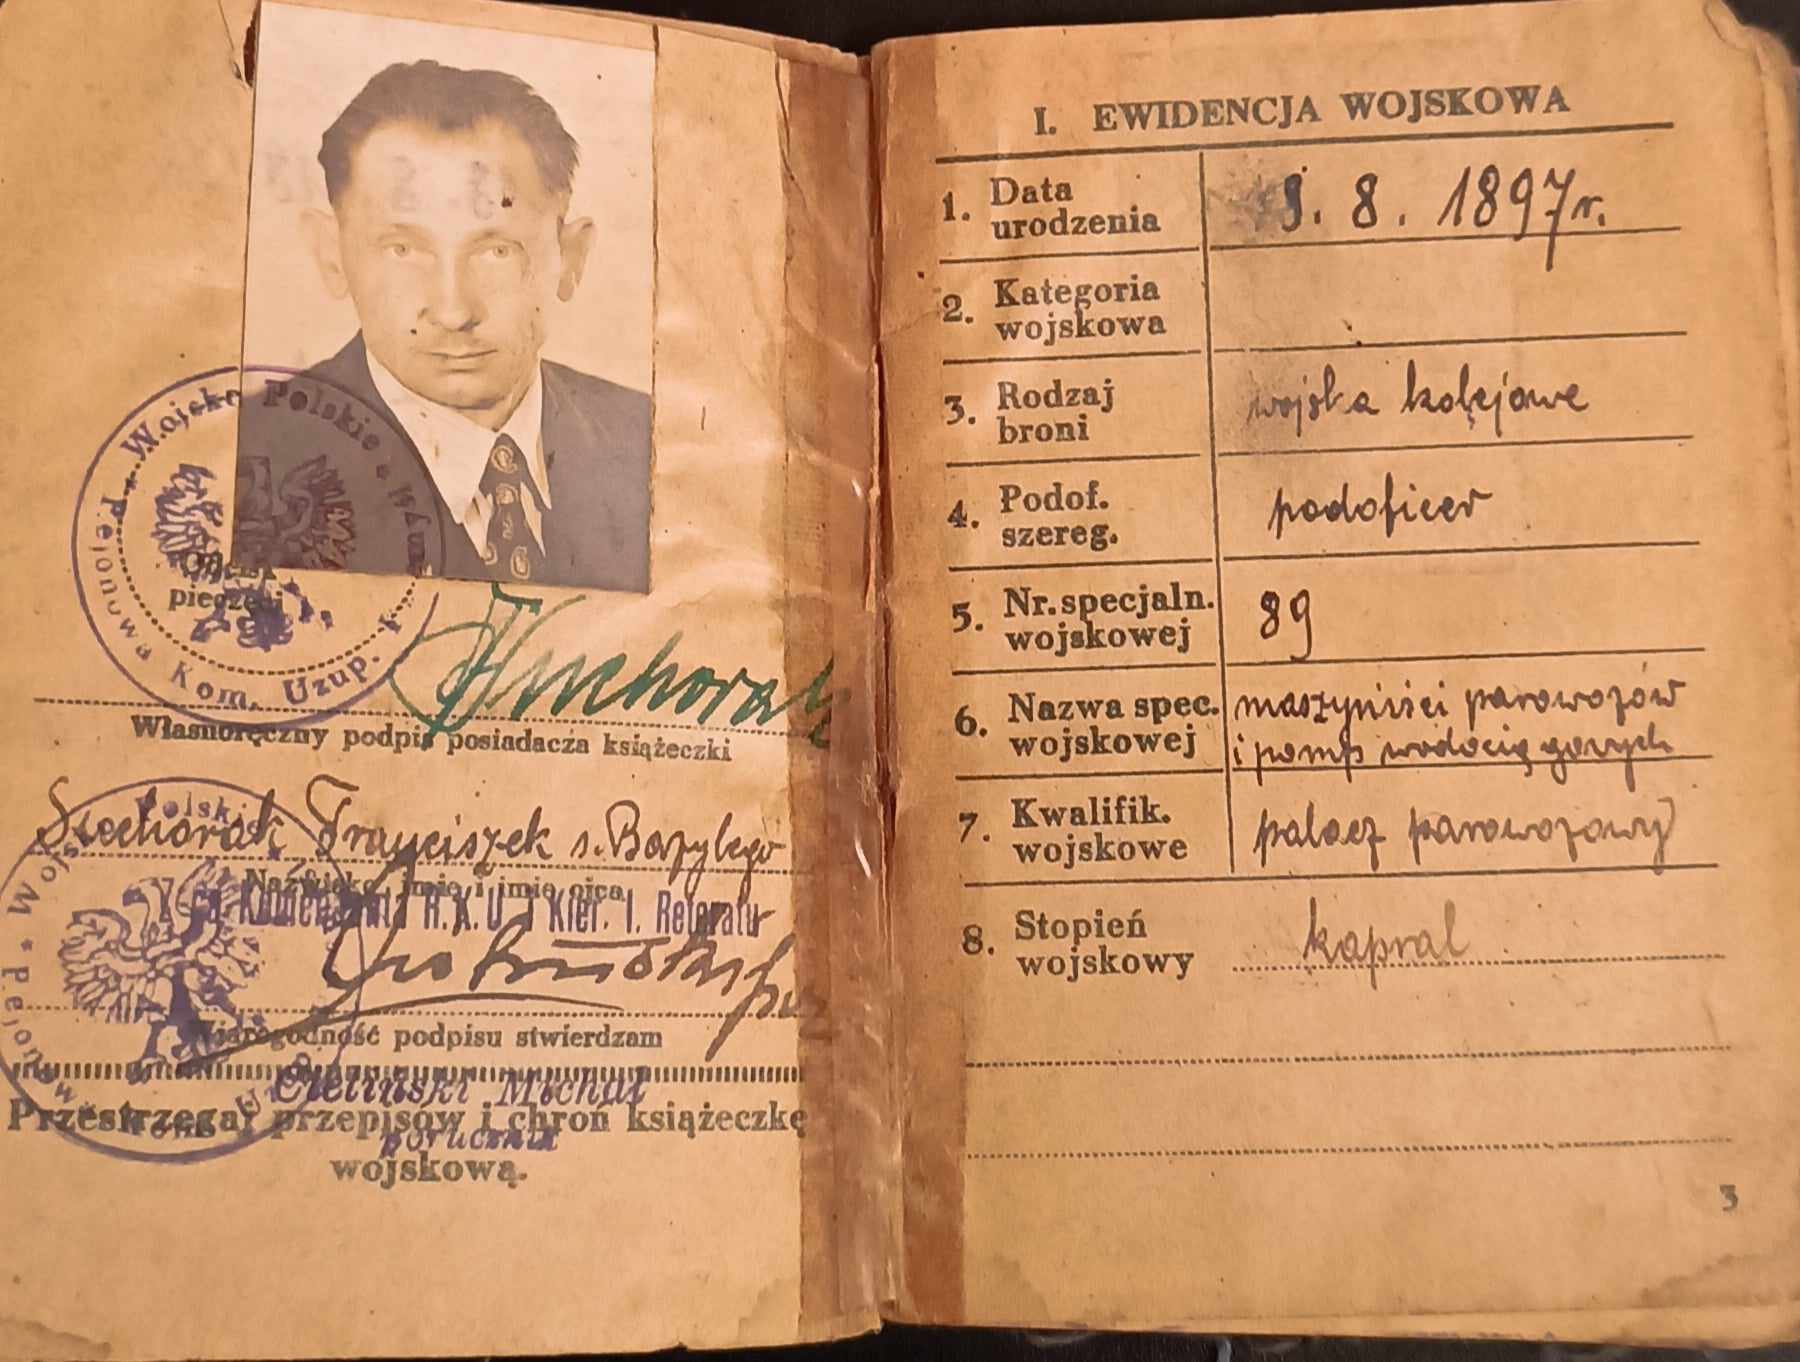 Wojsko Polskie
Rejonowa Kom. Uzup.
pieczęci
Własnoręczny podpis posiadacza książeczki
Suchorak Franciszek s. Bazylego
Nazwisko, imię i imię ojca
Komendanta R.K.U. i Kier. I. Referatu
Wiarogodność podpisu stwierdzam
Cieliński Michał
Przestrzegaj przepisów i chroń książeczkę
porucznik
wojskową.
I. EWIDENCJA WOJSKOWA
1. Data urodzenia 9. 8. 1897 r.
2. Kategoria wojskowa
3. Rodzaj broni wojska kolejowe
4. Podof. szereg. podoficer
5. Nr. specjaln. wojskowej 89
6. Nazwa spec. wojskowej maszyniści parowozów
i pomp wodociągowych
7. Kwalifik. wojskowe palacz parowozowy
8. Stopień wojskowy kapral
3